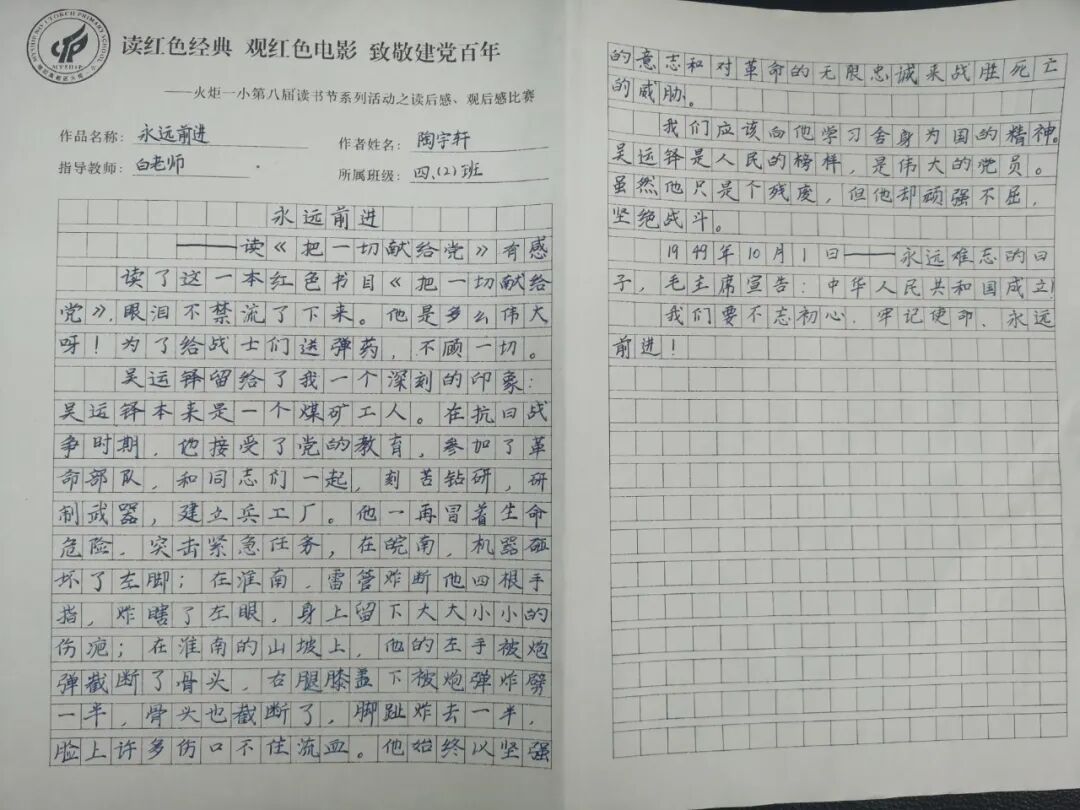 读红色经典 观红色电影 致敬建党百年
——火炬一小第八届读书节系列活动之读后感、观后感比赛
作品名称：永远前进 作者姓名：陶宇轩
指导教师：白老师 所属班级：四.(2)班
永远前进
——读《把一切献给党》有感
读了这一本红色书目《把一切献给
党》，眼泪不禁流了下来。他是多么伟大
呀！为了给战士们送弹药，不顾一切。
吴运铎留给了我一个深刻的印象：
吴运铎本来是一个煤矿工人。在抗日战
争时期，他接受了党的教育，参加了革
命部队，和同志们一起，刻苦钻研，研
制武器，建立兵工厂。他一再冒着生命
危险，突击紧急任务，在皖南，机器砸
坏了左脚；在淮南，雷管炸断他四根手
指，炸瞎了左眼，身上留下大大小小的
伤疤；在淮南的山坡上，他的左手被炮
弹截断了骨头，右腿膝盖下被炮弹炸劈
一半，骨头也截断了，脚趾炸去一半，
脸上许多伤口不住流血。他始终以坚强
的意志和对革命的无限忠诚来战胜死亡
的威胁。
我们应该向他学习舍身为国的精神。
吴运铎是人民的榜样，是伟大的党员。
虽然他只是个残废，但他却顽强不屈，
坚绝战斗。
1949年10月1日——永远难忘的日
子，毛主席宣告：中华人民共和国成立！
我们要不忘初心、牢记使命、永远
前进！